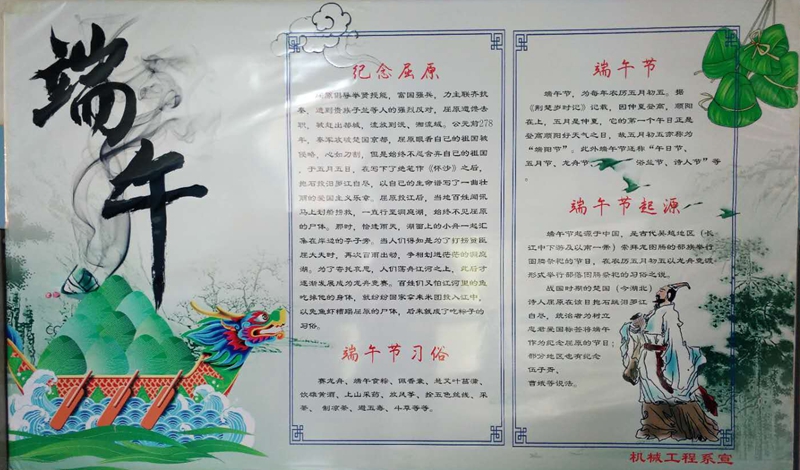 端午
纪念屈原
屈原倡导举贤授能，富国强兵，力主联齐抗
秦，遭到贵族子兰等人的强烈反对，屈原遭馋去
职，被赶出都城，流放到沅、湘流域。公元前278
年，秦军攻破楚国京都，屈原眼看自己的祖国被
侵略，心如刀割，但是始终不忍舍弃自己的祖国
，于五月五日，在写下了绝笔作《怀沙》之后，
抱石投汨罗江自尽，以自己的生命谱写了一曲壮
丽的爱国主义乐章。屈原投江后，当地百姓闻讯
马上划船捞救，一直行至洞庭湖，始终不见屈原
的尸体。那时，恰逢雨天，湖面上的小舟一起汇
集在岸边的亭子旁。当人们得知是为了打捞贤臣
屈大夫时，再次冒雨出动，争相划进茫茫的洞庭
湖。为了寄托哀思，人们荡舟江河之上，此后才
逐渐发展成为龙舟竞赛。百姓们又怕江河里的鱼
吃掉他的身体，就纷纷回家拿来米团投入江中，
以免鱼虾糟蹋屈原的尸体，后来就成了吃粽子的
习俗。
端午节习俗
赛龙舟、端午食粽、佩香囊、悬艾叶菖蒲、
饮雄黄酒、上山采药、放风筝、拴五色丝线、采
茶、制凉茶、避五毒、斗草等等。
端午节
端午节，为每年农历五月初五。据
《荆楚岁时记》记载，因仲夏登高，顺阳
在上，五月是仲夏，它的第一个午日正是
登高顺阳好天气之日，故五月初五亦称为
“端阳节”。此外端午节还称“午日节、
五月节、龙舟节、浴兰节、诗人节”等
端午节起源
端午节起源于中国，是古代吴越地区（长
江中下游及以南一带）崇拜龙图腾的部族举行
图腾祭祀的节日，在农历五月初五以龙舟竞渡
形式举行部落图腾祭祀的习俗之说。
战国时期的楚国（今湖北）
诗人屈原在该日抱石跳汨罗江
自尽，统治者为树立
忠君爱国标签将端午
作为纪念屈原的节日；
部分地区也有纪念
伍子胥、
曹娥等说法。
机械工程系宣